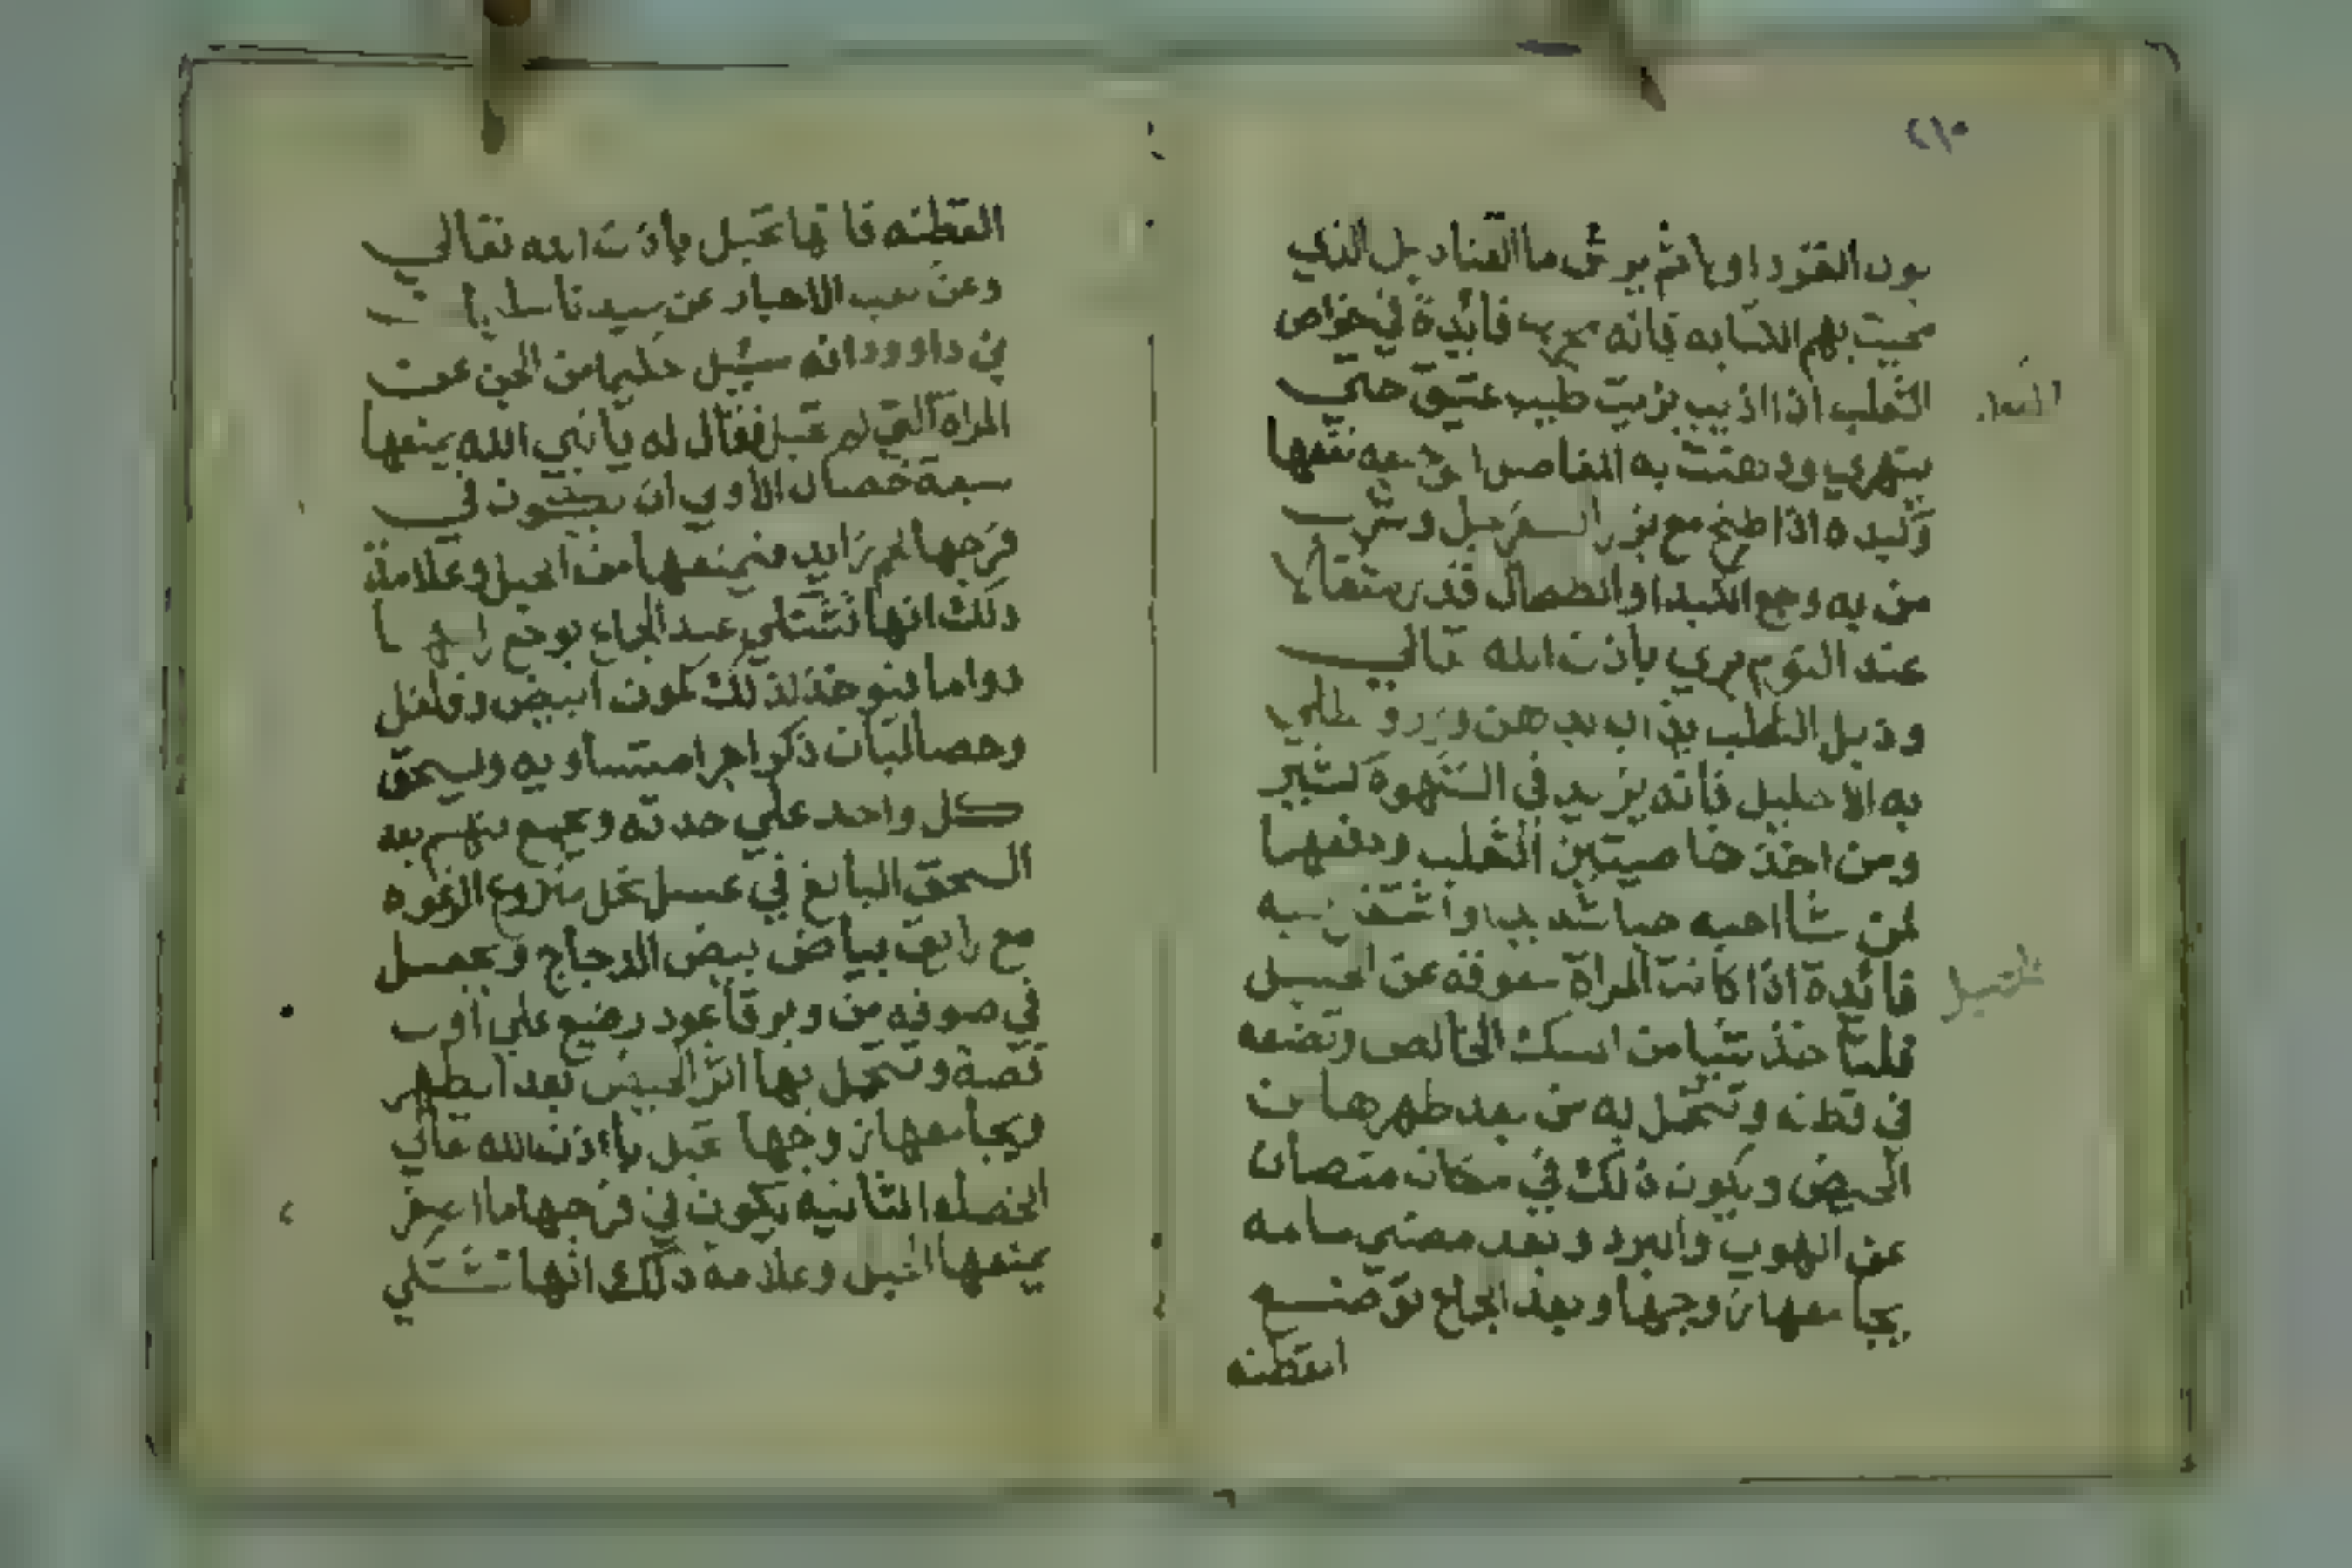 ٢١٥
اويا ثم يرش ما القناديل الذي
بهم الكتابه فانه مجرب فائدة في خواص
الثعلب اذا اذيب بزيت طيب عتيق حتي
يتهري ودهنت به المفاصل نفعها
وكبده اذا طبخ مع بزر وشرب
من به وجع الكبد او الطحال قدر مثقالا
عند النوم بري باذن الله تعالي
الثعلب
به الاحليل فانه يزيد في الشهوة كثير
ومن اخذ خاصيتين الثعلب ودفعهما
لمن شا احبه حبا شديدا
فائدة اذا كانت المراة معوقه عن الحبل
خذ شيا من المسك الخالص وتضعه
في قطنه وتتحمل به من بعد طهرها من
الحيض ويكون ذلك في مكان منصان
عن الهوي والبرد وبعد مضي ساعه
يجامعها زوجها وبعد الجماع توضع
القطنه
للحبل
القطنه فانها تحبل باذن الله تعالي
وعن كعب الاحبار عن سيدنا سليمان
بن داوود انه سئل حكيما من الجن عن
المراة التي لم تحبل فقال له يا نبي الله يمنعها
سبعة خصال الاولي ان يكون في
فرجها لحم زايد فيمنعها من الحبل وعلامة
ذلك انها تشتكي عند الجماع بوجع
دواها فيوخذ لذلك كمون ابيض وفلفل
وحصالبان ذكر اجزا متساويه ويسحق
كل واحد علي حدته ويجمع بينهم بعد
السحق البالغ في عسل نحل منزوع الرغوه
مع بياض بيض الدجاج ويجعل
في صوفه من
وتتحمل بها اثر الحيض بعد الطهر
ويجامعها زوجها تحبل باذن الله تعالي
الخصله الثانيه يكون في فرجها ما
يمنعها الحبل وعلامة ذلك انها تشتكي